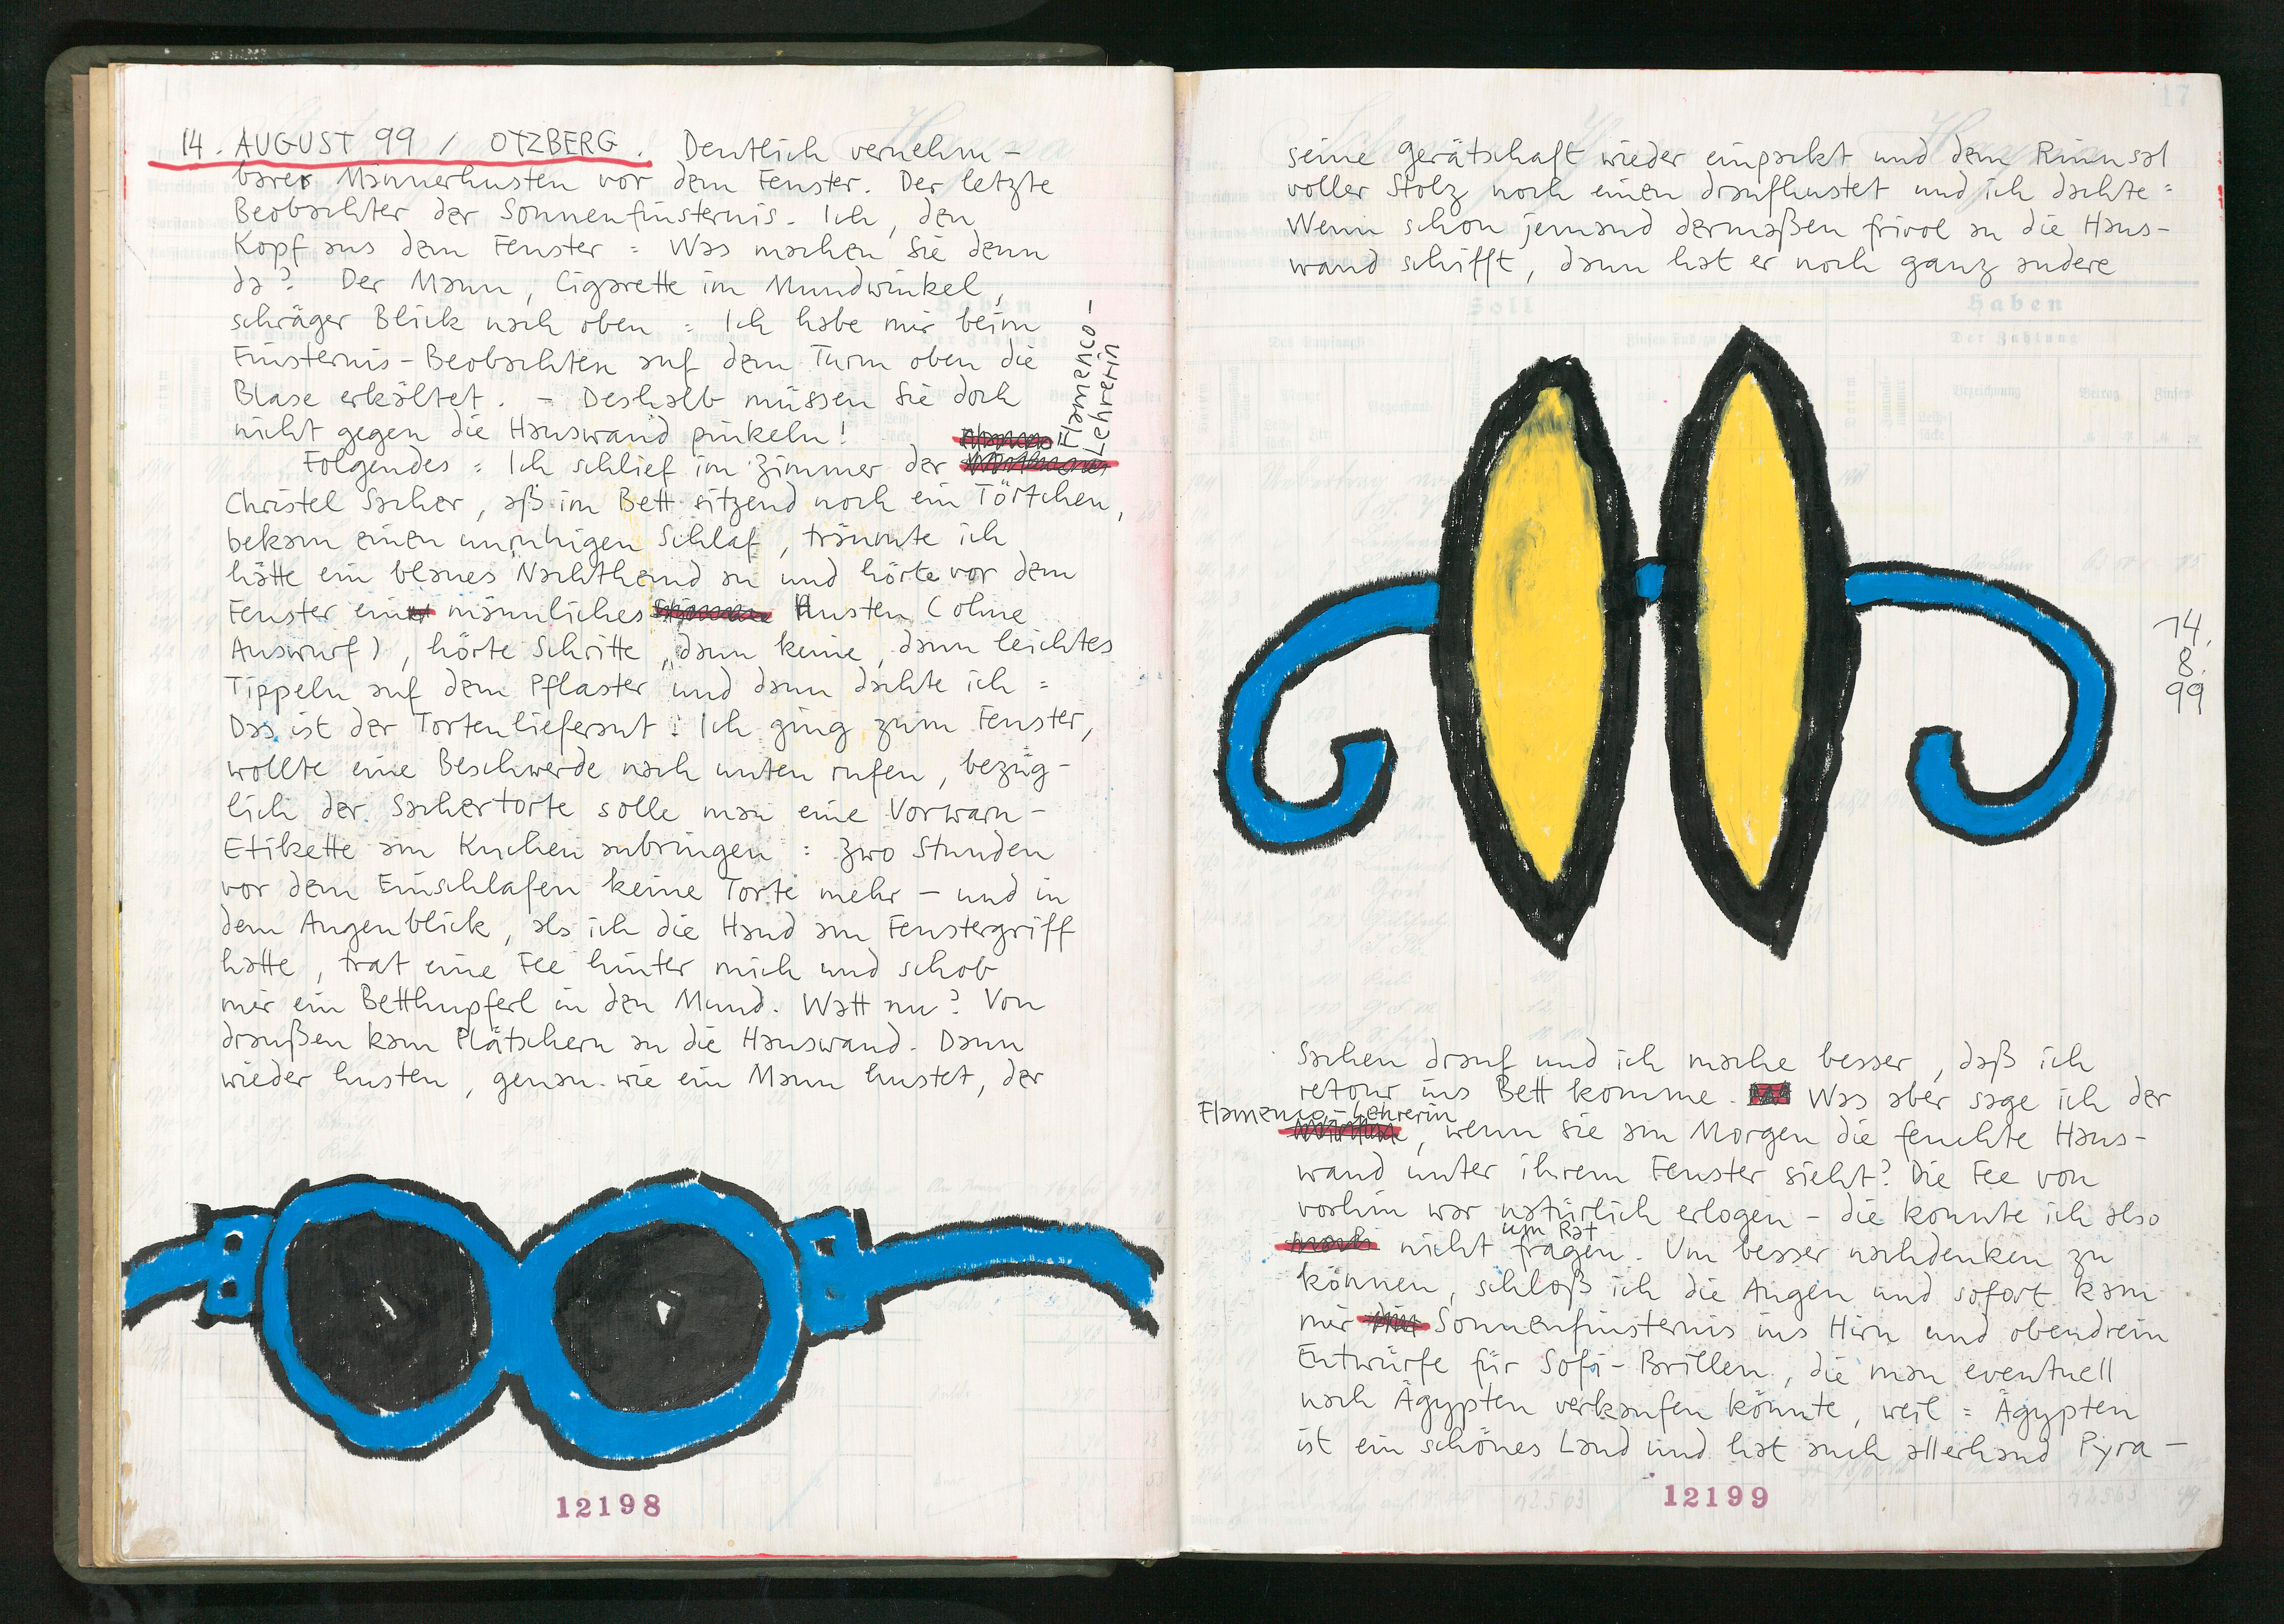 14. AUGUST 99 / OTZBERG. Deutlich vernehm-
barer Männerhusten vor dem Fenster. Der letzte
Beobachter der Sonnenfinsternis. Ich, den
Kopf aus dem Fenster: Was machen Sie denn
da? Der Mann, Cigarette im Mundwinkel,
schräger Blick nach oben: Ich habe mir beim
Finsternis-Beobachten auf dem Turm oben die
Blase erkältet. – Deshalb müssen Sie doch
nicht gegen die Hauswand pinkeln!
Folgendes: Ich schlief im Zimmer der
Flamenco-
Lehrerin
Christel Sacher, aß im Bett sitzend noch ein Törtchen,
bekam einen unruhigen Schlaf, träumte ich
hätte ein blaues Nachthemd an und hörte vor dem
Fenster ein männliches Husten (ohne
Auswurf), hörte Schritte, dann keine, dann leichtes
Tippeln auf dem Pflaster und dann dachte ich:
Das ist der Tortenlieferant! Ich ging zum Fenster,
wollte eine Beschwerde nach unten rufen, bezüg-
lich der Sachertorte solle man eine Vorwarn-
Etikette am Kuchen anbringen: Zwo Stunden
vor dem Einschlafen keine Torte mehr – und in
dem Augenblick, als ich die Hand am Fenstergriff
hatte, trat eine Fee hinter mich und schob
mir ein Betthupferl in den Mund. Watt nu? Von
draußen kam Plätschern an die Hauswand. Dann
wieder husten, genau wie ein Mann hustet, der
12198
17
seine Gerätschaft wieder einpackt und dem Rinnsal
voller Stolz noch einen draufhustet und ich dachte:
Wenn schon jemand dermaßen frivol an die Haus-
wand schifft, dann hat er noch ganz andere
Soll
Haben
Der Zahlung
Bezeichnung
Betrag
14.
8.
99
Sachen drauf und ich mache besser, daß ich
retour ins Bett komme. Was aber sage ich der
Flamenco-Lehrerin
, wenn sie am Morgen die feuchte Haus-
wand unter ihrem Fenster sieht? Die Fee von
vorhin war natürlich erlogen – die konnte ich also
nicht um Rat fragen. Um besser nachdenken zu
können, schloß ich die Augen und sofort kam
mir Sonnenfinsternis ins Hirn und obendrein
Entwürfe für Sofi-Brillen, die man eventuell
nach Ägypten verkaufen könnte, weil: Ägypten
ist ein schönes Land und hat auch allerhand Pyra-
12199